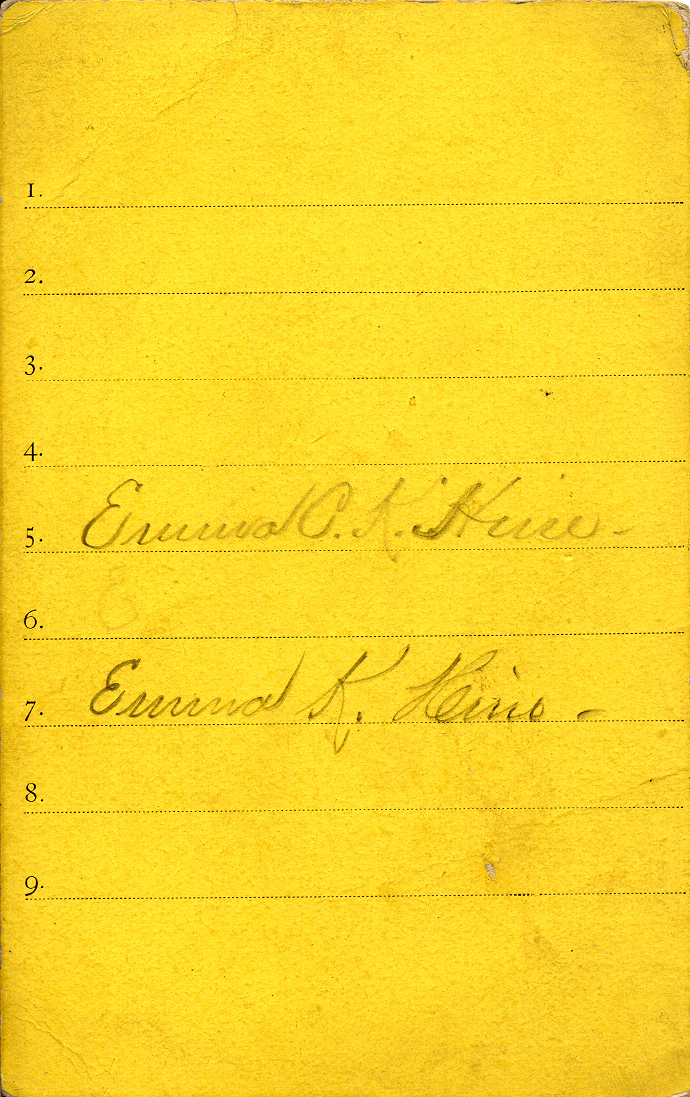 1.
2.
3.
4.
5. Emma C. K. Hine -
6. E
7. Emma K. Hine -
8.
9.